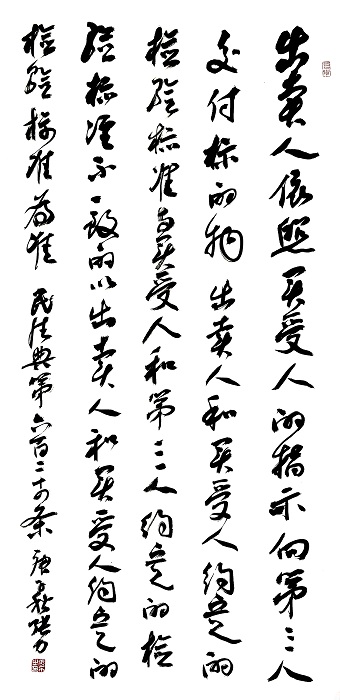 出卖人依照买受人的指示向第三人
交付标的物出卖人和买受人约定的
检验标准与买受人和第三人约定的检
验标准不一致的以出卖人和买受人约定的
检验标准为准 民法典第六百二十四条 庚子秋张力